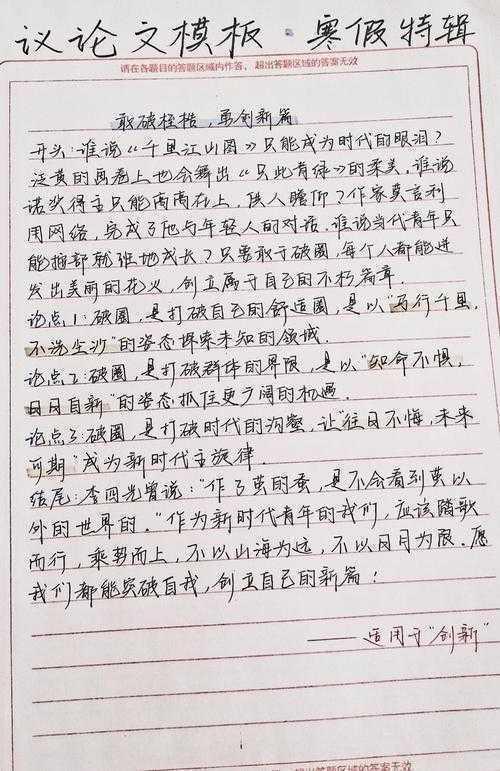 议论文模板·寒假特辑
请在各题目的答题区域内作答，超出答题区域的答案无效
敢破桎梏，勇创新篇
开头:谁说《千里江山图》只能成为时代的眼泪?
泛黄的画卷上也会舞出《只此青绿》的柔美,谁说
诺奖得主只能高高在上,供人瞻仰?作家莫言利
用网络,完成了他与年轻人的对话.谁说当代青年只
能按部就班地成长?只要敢于破圈,每个人都能迸
发出美丽的花火,创立属于自己的不朽篇章.
论点1:破圈,是打破自己的舒适圈,是以"万行千里,
不洗尘沙"的姿态探索未知的领域.
论点2:破圈,是打破群体的界限,是以"知命不惧,
日日自新"的姿态抓住更广阔的机遇.
论点3:破圈,是打破时代的沟壑,让"往日不悔,未来
可期"成为新时代主旋律.
结尾:李四光曾说:"作了茧的蚕,是不会看到茧以
外的世界的."作为新时代青年的我们,应该踏歌
而行,乘势而上,不以山海为远,不以日月为限.愿
我们都能突破自我,创立自己的新篇!
——适用于"创新"
超出答题区域的答案无效